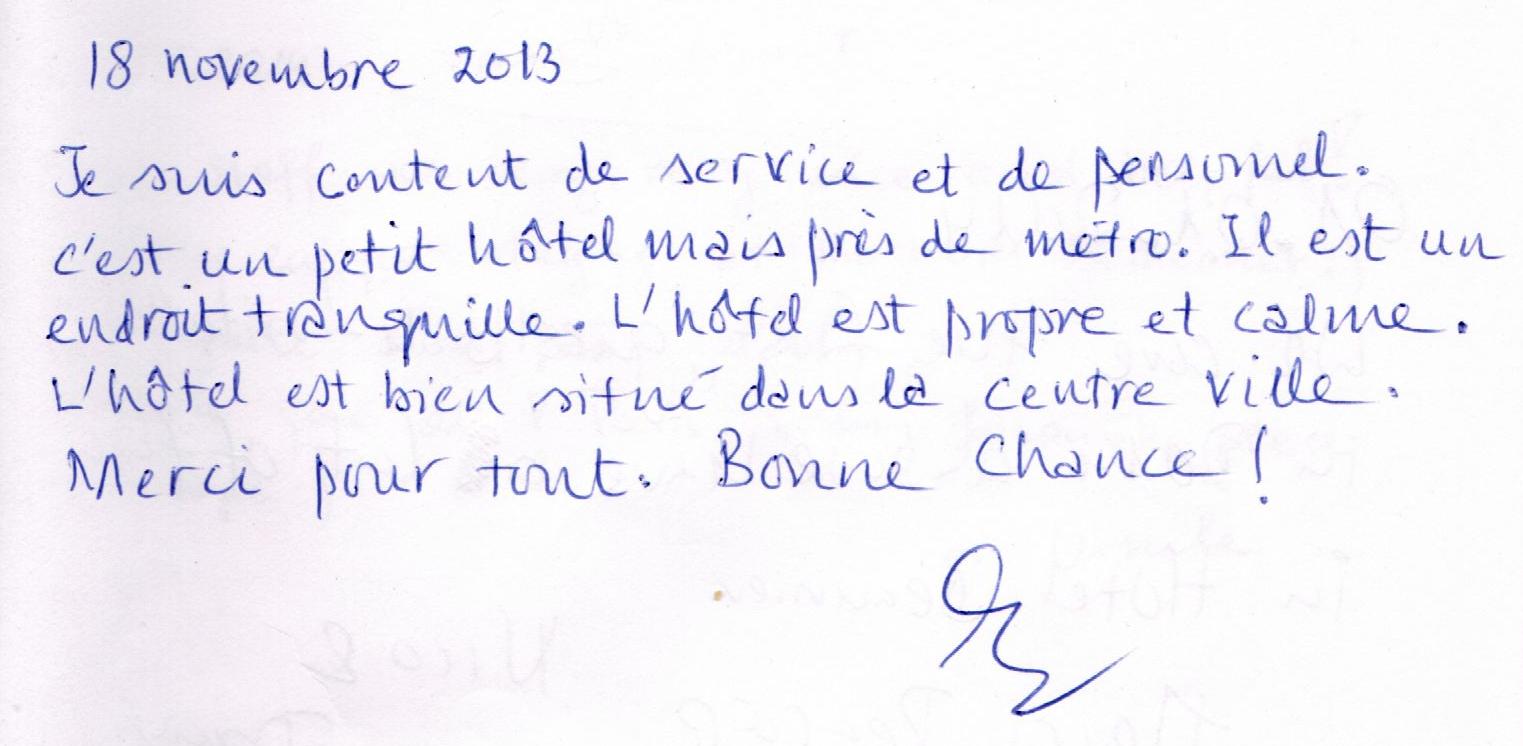 18 novembre 2013
Je suis content de service et de personnel.
c'est un petit hôtel mais près de métro. Il est un
endroit tranquille. L'hôtel est propre et calme.
L'hôtel est bien situé dans la centre ville.
Merci pour tout. Bonne Chance !